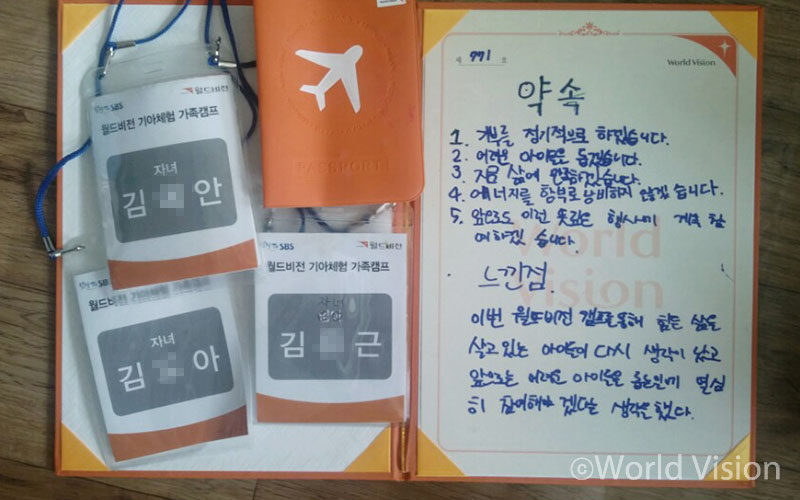 SBS 월드비전
월드비전 기아체험 가족캠프
자녀
김 안
PASSPORT
SBS 월드비전
월드비전 기아체험 가족캠프
자녀
김 근
월드비전 기아체험 가족캠프
자녀
김 아
제 771 호
World Vision
약속
1. 기부를 정기적으로 하겠습니다.
2. 어려운 아이들을 돕겠습니다.
3. 지금 삶에 만족하겠습니다.
4. 에너지를 함부로 낭비하지 않겠습니다.
5. 앞으로도 이런 뜻깊은 행사에 계속 참
여하겠습니다.
World
Vision
느낀점.
이번 월드비전 캠프를 통해 힘든 삶을
살고있는 아이들이 다시 생각이 났고
앞으로는 어려운 아이들을 돕는일에 열심
히 참여해야 겠다는 생각을 했다.
©World Vision